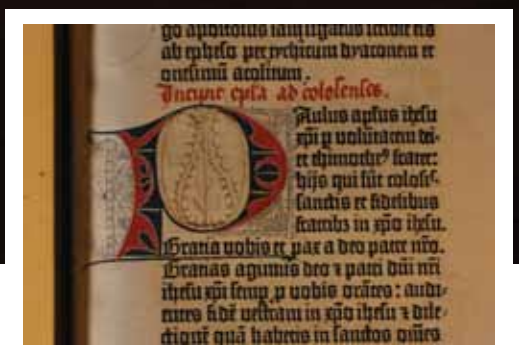 go apostolus iam ligatus scribit eis
ab epheso per tychicum dyaconem et
onesimū acolitum.
Incipit epl'a ad colosenses.
Paulus apl'us ihesu
xpi p voluntatem dei·
et thimothe⁹ frater:
hijs qui sūt coloss⸗
sanctis et fidelibus
fratribz in xpo ihesu.
Gratia vobis et pax a deo patre nr̄o.
Gratias agimus deo ⁊ patri dn̄i nr̄i
ihesu xpi semp p vobis orātes: audi⸗
entes fidē vestram in xpo ihesu ⁊ dile⸗
ctionē quā habetis in sanctos om̄es